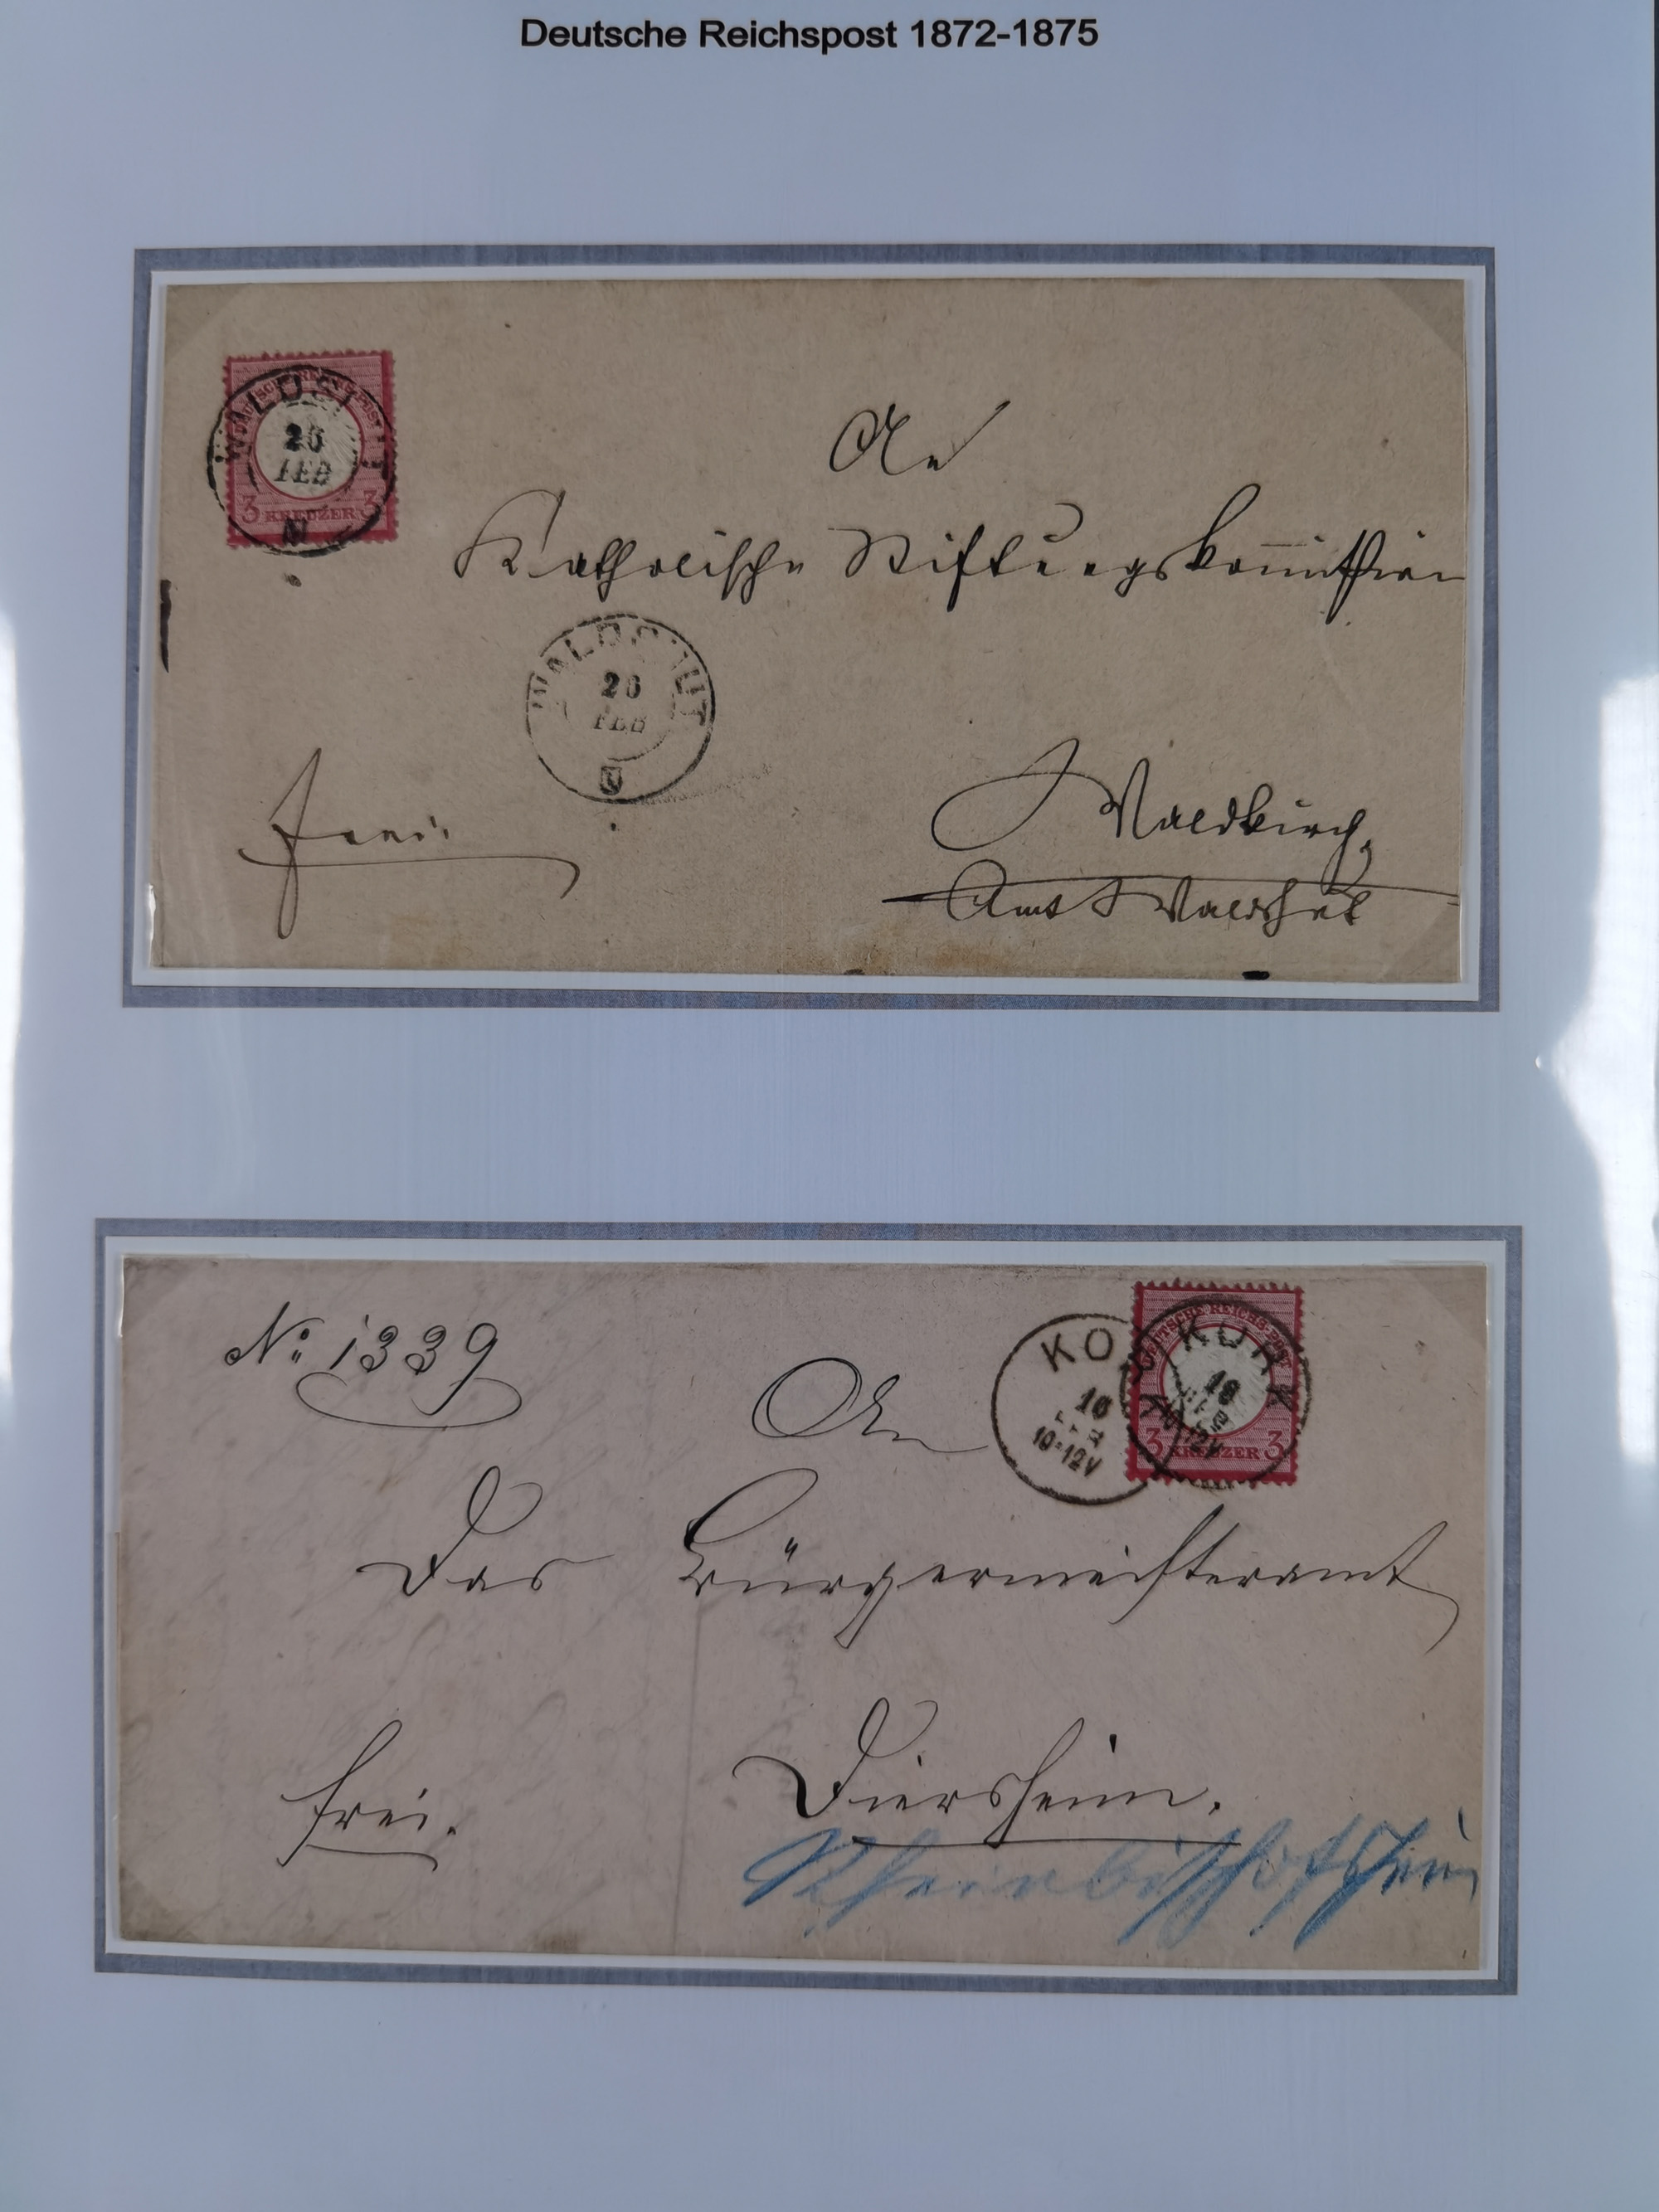 Deutsche Reichspost 1872-1875
WALDSHUT
26
FEB
DEUTSCHE REICHS-POST
3 KREUZER 3
An
Katholische Stiftungskom̅ission
WALDSHUT
26
FEB
frei
Waldkirch,
Amt Waldshut
No. 1339
An
KO
10-12V
KORK
18
10-12V
DEUTSCHE REICHS-POST
3 KREUZER 3
Das Bürgermeisteramt
frei.
Diersheim.
Rheinbischofsheim